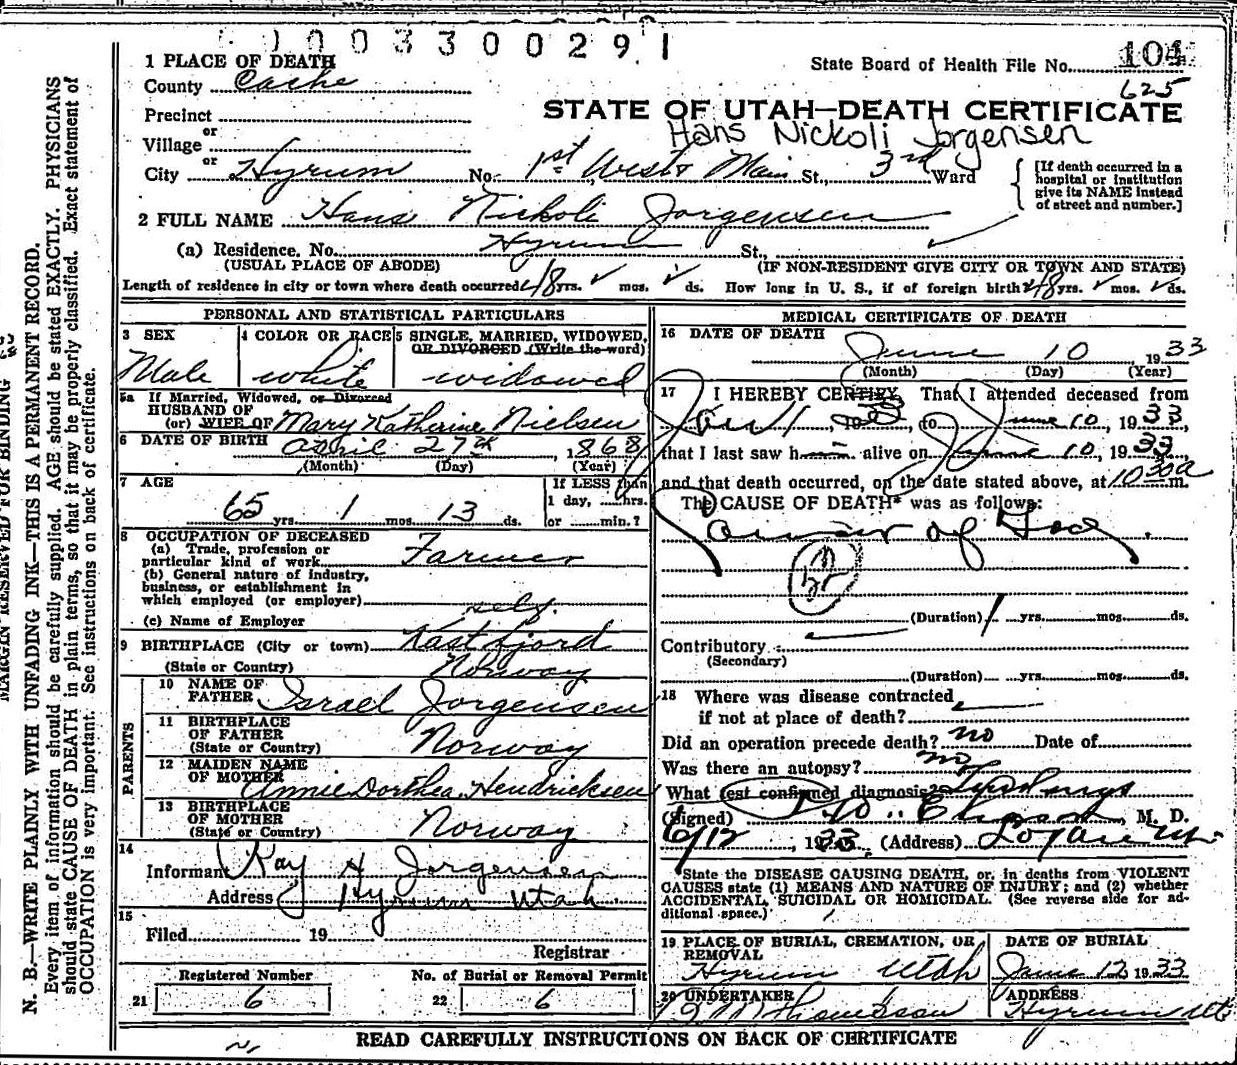 1003300291
1 PLACE OF DEATH
State Board of Health File No. 104
County Cache
625
STATE OF UTAH—DEATH CERTIFICATE
Precinct
Hans Nickoli Jorgensen
or
Village
or
City Hyrum No. 1st West & Main St., 3rd Ward
[If death occurred in a hospital or institution give its NAME instead of street and number.]
2 FULL NAME Hans Nickoli Jorgensen
(a) Residence. No. Hyrum St.,
(USUAL PLACE OF ABODE) (IF NON-RESIDENT GIVE CITY OR TOWN AND STATE)
Length of residence in city or town where death occurred 48 yrs. mos. ds. How long in U. S., if of foreign birth? 48 yrs. mos. ds.
PERSONAL AND STATISTICAL PARTICULARS
3 SEX
Male
4 COLOR OR RACE
white
5 SINGLE, MARRIED, WIDOWED,
OR DIVORCED (Write the word)
widowed
5a If Married, Widowed, or Divorced
HUSBAND OF
(or) WIFE OF Mary Katherine Nielsen
6 DATE OF BIRTH april 27th, 1868
(Month) (Day) (Year)
7 AGE
65 yrs. 1 mos. 13 ds.
If LESS than
1 day, hrs.
or min.?
8 OCCUPATION OF DECEASED
(a) Trade, profession or
particular kind of work Farmer
(b) General nature of industry,
business, or establishment in
which employed (or employer)
self
(c) Name of Employer
9 BIRTHPLACE (City or town) Kastfjord
(State or Country) Norway
PARENTS
10 NAME OF
FATHER Israel Jorgensen
11 BIRTHPLACE
OF FATHER
(State or Country) Norway
12 MAIDEN NAME
OF MOTHER Annie Dorthea Hendricksen
13 BIRTHPLACE
OF MOTHER
(State or Country) Norway
14
Informant Ray H Jorgensen
Address Hyrum Utah
15
Filed 19
Registrar
Registered Number
21 6
No. of Burial or Removal Permit
22 6
MEDICAL CERTIFICATE OF DEATH
16 DATE OF DEATH
June 10, 1933
(Month) (Day) (Year)
17 I HEREBY CERTIFY, That I attended deceased from
to June 10, 1933,
that I last saw h alive on June 10, 1933
and that death occurred, on the date stated above, at 10 30 a m.
The CAUSE OF DEATH* was as follows:
(Duration) 1 yrs. mos. ds.
Contributory
(Secondary)
(Duration) yrs. mos. ds.
18 Where was disease contracted
if not at place of death?
Did an operation precede death? no Date of
Was there an autopsy? no
What test confirmed diagnosis?
(Signed) M. D.
6/12, 1933, (Address) Logan Ut.
*State the DISEASE CAUSING DEATH, or, in deaths from VIOLENT
CAUSES state (1) MEANS AND NATURE OF INJURY; and (2) whether
ACCIDENTAL, SUICIDAL OR HOMICIDAL. (See reverse side for ad-
ditional space.)
19 PLACE OF BURIAL, CREMATION, OR
REMOVAL
Hyrum Utah
DATE OF BURIAL
June 12 1933
20 UNDERTAKER
ADDRESS
Hyrum Ut
READ CAREFULLY INSTRUCTIONS ON BACK OF CERTIFICATE
MARGIN RESERVED FOR BINDING
N. B.—WRITE PLAINLY WITH UNFADING INK—THIS IS A PERMANENT RECORD.
Every item of information should be carefully supplied. AGE should be stated EXACTLY. PHYSICIANS
should state CAUSE OF DEATH in plain terms, so that it may be properly classified. Exact statement of
OCCUPATION is very important. See instructions on back of certificate.